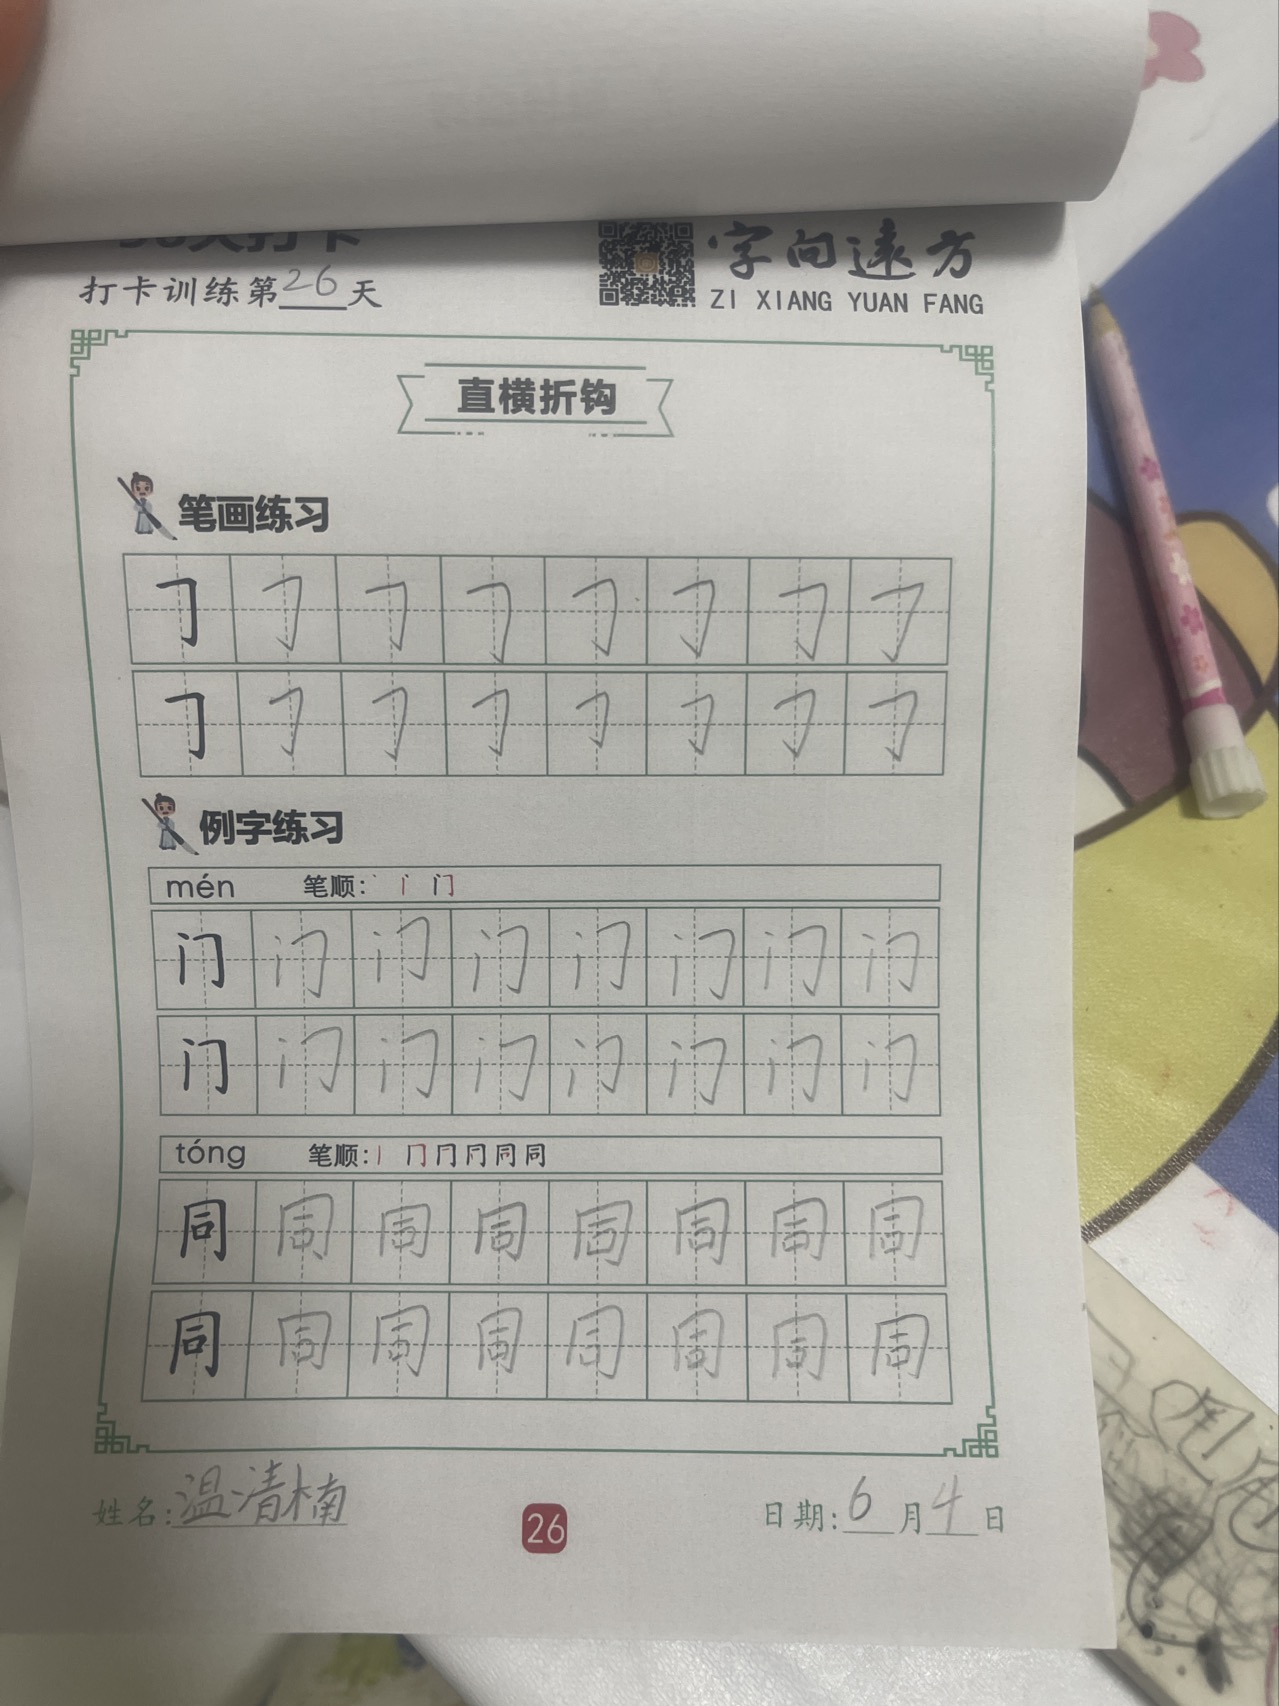 打卡训练第26天
字向远方
ZI XIANG YUAN FANG
直横折钩
笔画练习
𠃌 𠃌 𠃌 𠃌 𠃌 𠃌 𠃌 𠃌
𠃌 𠃌 𠃌 𠃌 𠃌 𠃌 𠃌 𠃌
例字练习
mén 笔顺: 丶 门
门 门 门 门 门 门 门 门
门 门 门 门 门 门 门 门
tóng 笔顺: 丨 冂 同 同
同 同 同 同 同 同 同 同
同 同 同 同 同 同 同 同
姓名:温清楠
26
日期:6月4日